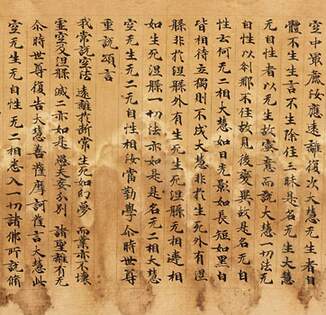 空中最麁汝應遠離復次大慧无生者自
體不生而非不生除住三昧是名无生大慧
无自性者以无生故密意而說大慧一切法无
自性以刹那不住故見後變異故是名无自
性云何无二相大慧如光影如長短如黑白
皆相待立獨則不成大慧非於生死外有涅
槃非於涅槃外有生死生死涅槃无相違相
如生死涅槃一切法亦如是是名无二相大慧
空无生无自性无二相汝當勤學尒時世尊
重說頌言
我常說空法 遠離於斷常 生死如幻夢 而業亦不壞
虛空及涅槃 滅二亦如是 愚夫妄分別 諸聖離有无
尒時世尊復告大慧菩薩摩訶薩言大慧此
空无生无自性无二相悉入一切諸佛所說修